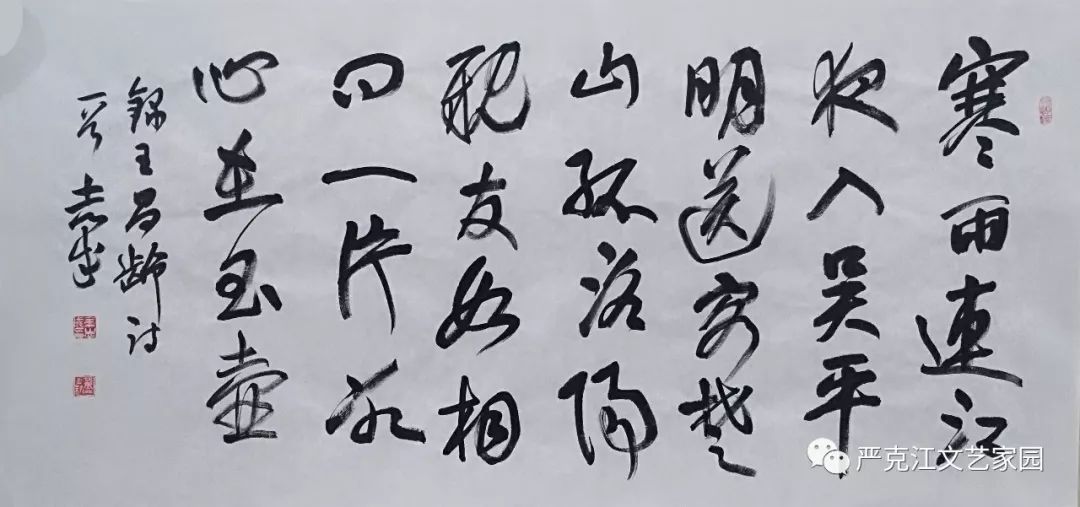 寒雨連江
夜入吴平
明送客楚
山孤洛陽
親友如相
问一片冰
心在玉壺
録王昌齡诗
一首
严克江文艺家园